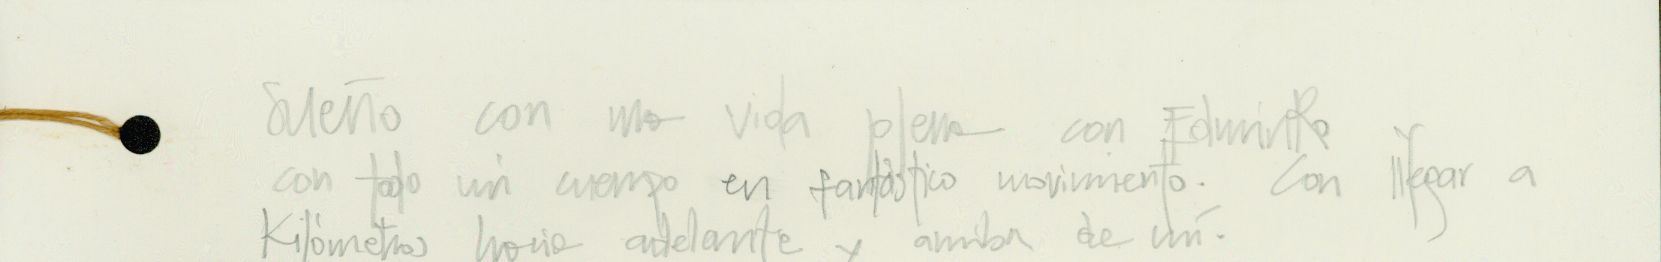 Sueño con una vida plena con y
con todo mi cuerpo en fantástico movimiento. Con llegar a
Kilómetros hacia adelante y arriba de mí.